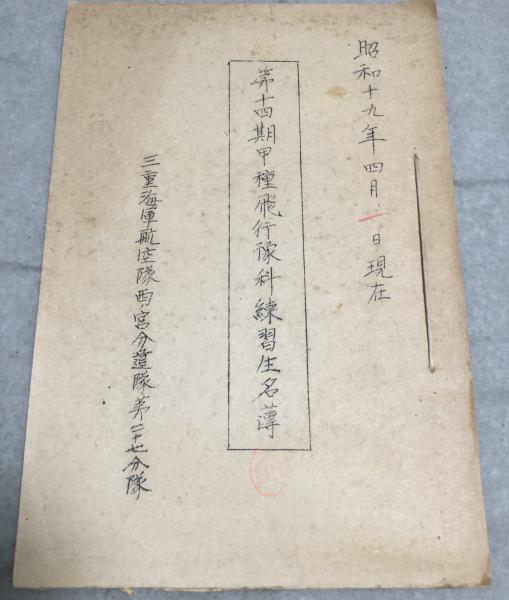 昭和十九年四月一日現在
第十四期甲種飛行豫科練習生名簿
三重海軍航空隊西ノ宮分遣隊第二十七分隊